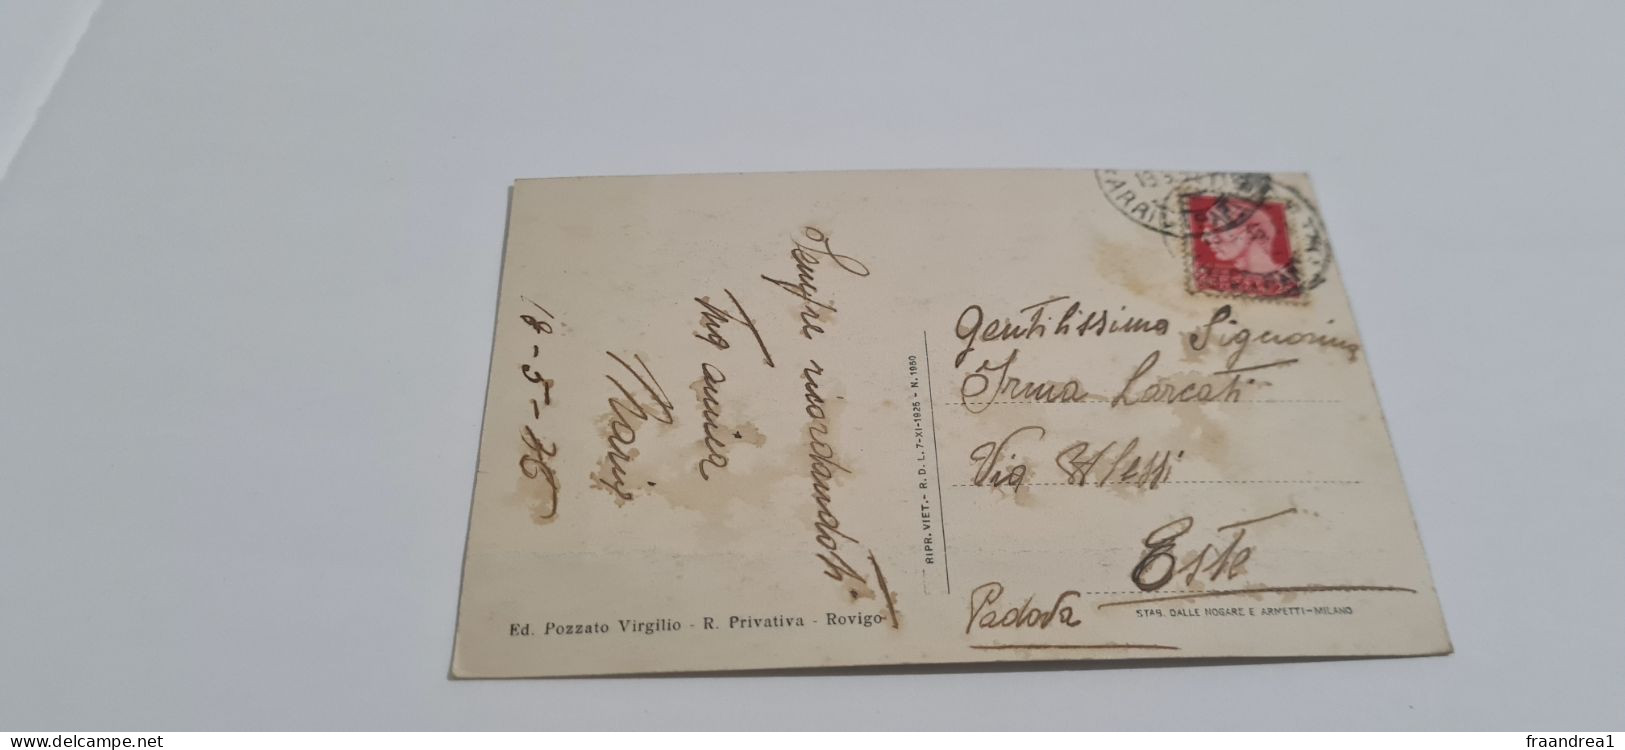 Sempre ricordandoti
Tua amica
Maria
18-5-36
Gentilissima Signorina
Irma Lorcati
Via Alessi
Este
Padova
RIPR. VIET. - R. D. L. 7-XI-1925 - N. 1950
STAB. DALLE NOGARE E ARMETTI-MILANO
Ed. Pozzato Virgilio - R. Privativa - Rovigo
www.delcampe.net
fraandrea1